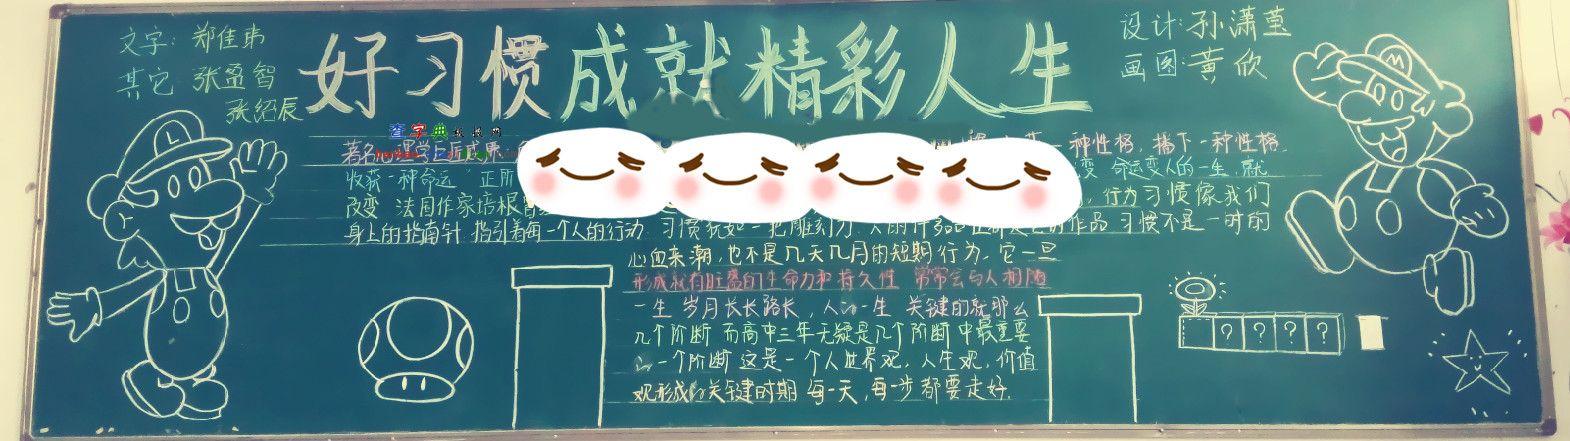 文字: 郑佳弟
其它 张盈智
张绍辰
好习惯成就精彩人生
设计:孙潇莹
画图:黄欣
L
M
查字典
著名心理学巨匠威廉
一种性格, 播下一种性格
收获一种命运" 正所
变 命运变人的一生, 就
改变 法国作家培根曾
, 行为习惯像我们
身上的指南针 指引着每一个人的行动. 习惯就如一把雕刻刀. 人的许多 作品 习惯不是一时的
心血来潮, 也不是几天几月的短期行为. 它一旦
形成就有旺盛的生命力和持久性 常常会与人相随
一生 岁月长长路长, 人的一生 关键的就那么
几个阶断 而高中三年无疑是几个阶断中最重要
的一个阶断 这是一个人世界观, 人生观, 价值
观形成的关键时期 每一天, 每一步都要走好.
? ? ? ?